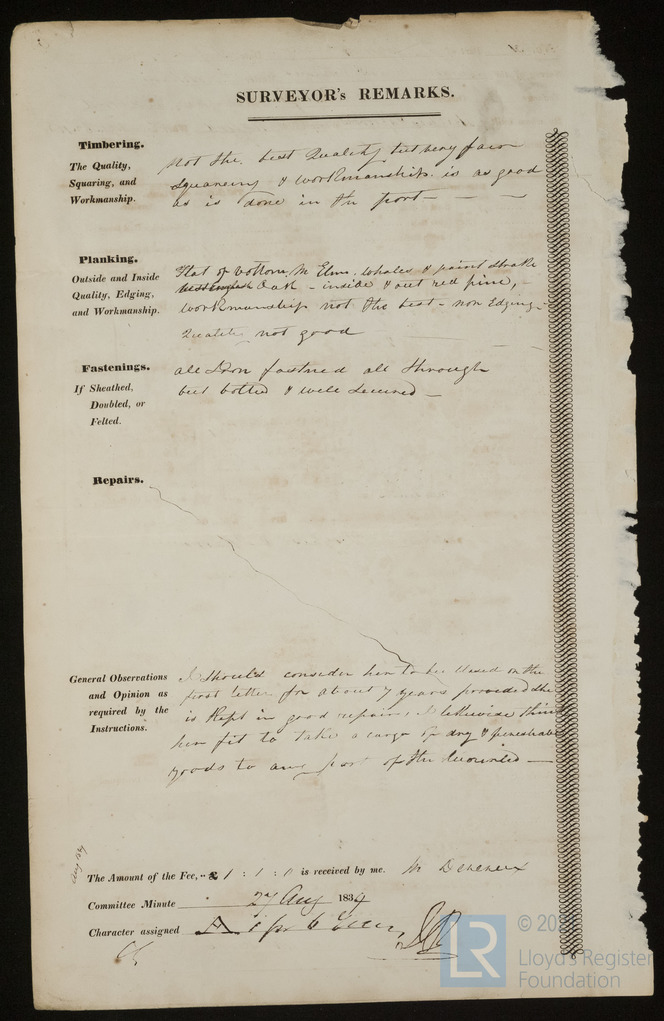 SURVEYOR's REMARKS.
Timbering.
The Quality,
Squaring, and
Workmanship.
Not the best Quality but very fair
Squareing & workmanship is as good
as is done in the port
Planking.
Outside and Inside
Quality, Edging,
and Workmanship.
Flat of bottom Elm. Whales & paint Strake
Oak - inside & out red pine,
workmanship not the best - non Edging
Quality not good
Fastenings.
If Sheathed,
Doubled, or
Felted.
all Iron fastned all through
but bolted & well Secured
Repairs.
General Observations
and Opinion as
required by the
Instructions.
I Should consider her to be Classd on the
first letter for about 7 years provided she
is Kept in good repair, I likewise think
her fit to take a cargo of dry & perishable
goods to any part of the
The Amount of the Fee, £ 1 : 1 : 0 is received by me.
Committee Minute 27 Aug 1834
Character assigned A 1 for 6
© 20
LR
Lloyd's Register
Foundation